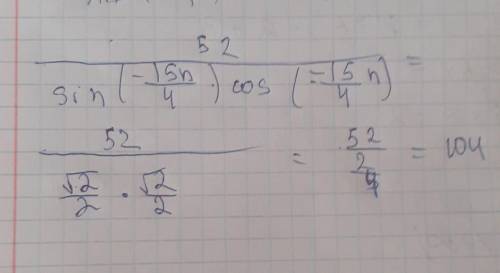 52
sin(-15π/4) cos(-15/4 π) =
52 / (√2/2 · √2/2) = 52 / (2/4) = 104